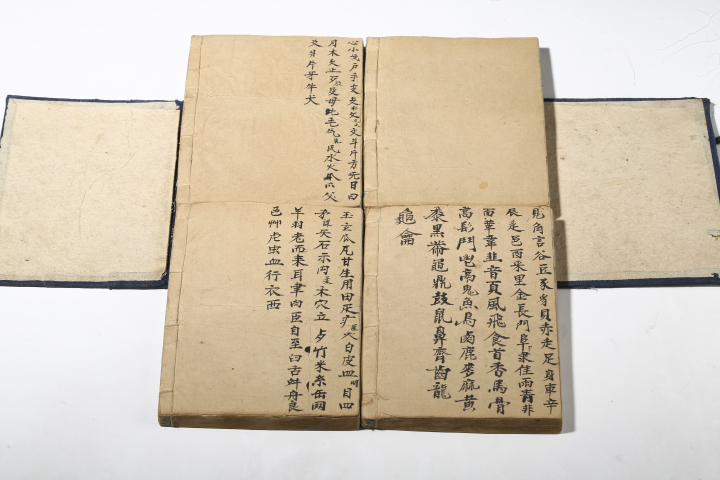 心小戈戶手支攴文斗斤方无日曰
月木欠止歹殳毋比毛氏气水火爪父
爻爿片牙牛犬
玉玄瓜瓦甘生用田疋疒癶白皮皿目四
矛矢石示禸禾穴立歺竹米糸缶网
羊羽老而耒耳聿肉臣自至臼舌舛舟艮
色艸虍虫血行衣西
見角言谷豆豕豸貝赤走足身車辛
辰辵邑酉釆里金長門阜隶隹雨青非
面革韋韭音頁風飛食首香馬骨
高髟鬥鬯鬲鬼魚鳥鹵鹿麥麻黃
黍黑黹黽鼎鼓鼠鼻齊齒龍
龜龠